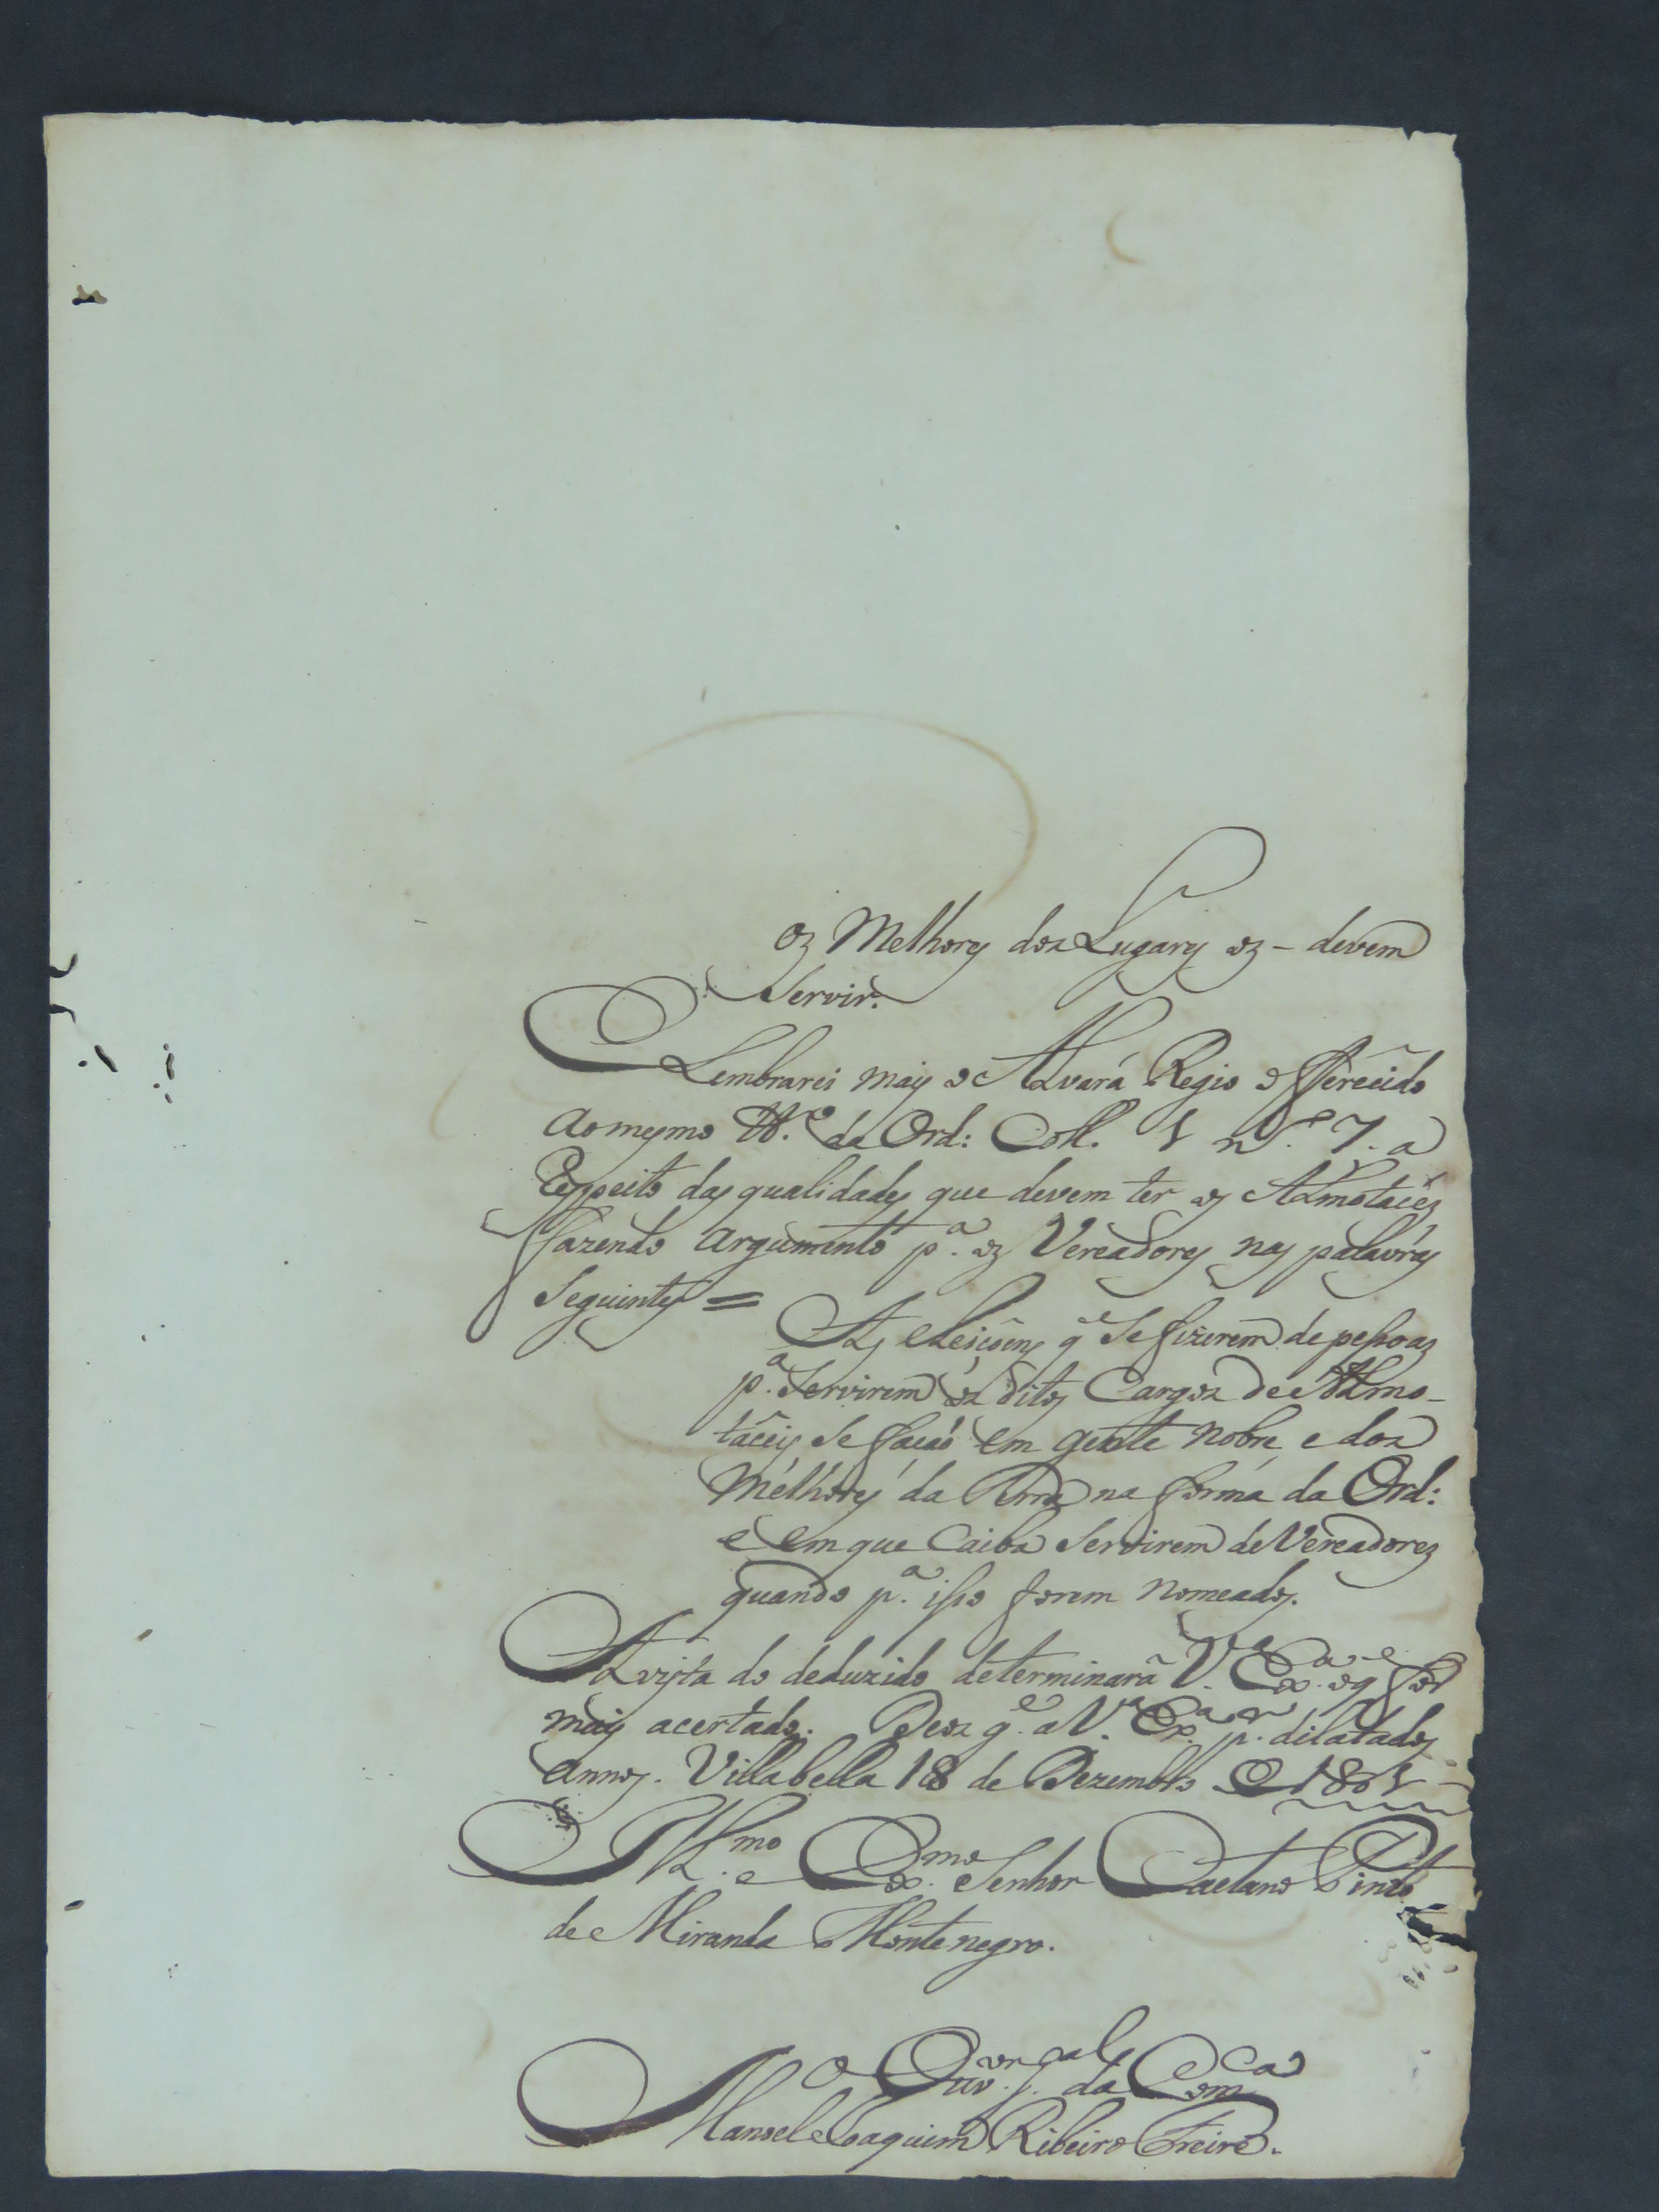 os Melhores dos Lugares os - devem
Servir.
Lembrarei mais o Alvará Regio offerecido
ao mesmo tt.º da Ord: Coll. 1 n.º 7. a
Respeito das qualidades que devem ter os Almotacés
fazendo argumento p.ª os Vereadores nas palavras
Seguintes =
As eleicoens q̃ Se fizerem de pessoas
p.ª Servirem os ditos Cargos de Almo-
táceis Se facaó em gente Nobre, e dos
Melhores da Terra na forma da Ord:
e em que Caiba Servirem de Vereadores
quando p.ª isso forem Nomeados.
A vista do deduzido determinará V.ª Ex.ª o q̃ for
mais acertado. Deos g.e a V.ª Ex.ª p.r dilatados
annos. Villa bella 18 de Dezembro D 1801
Ill.mo e Ex.mo Senhor Caetano Pinto
de Miranda Montenegro.
O Ouv.or g.al da Com.ca
Manoel Joaquim Ribeiro Freire.